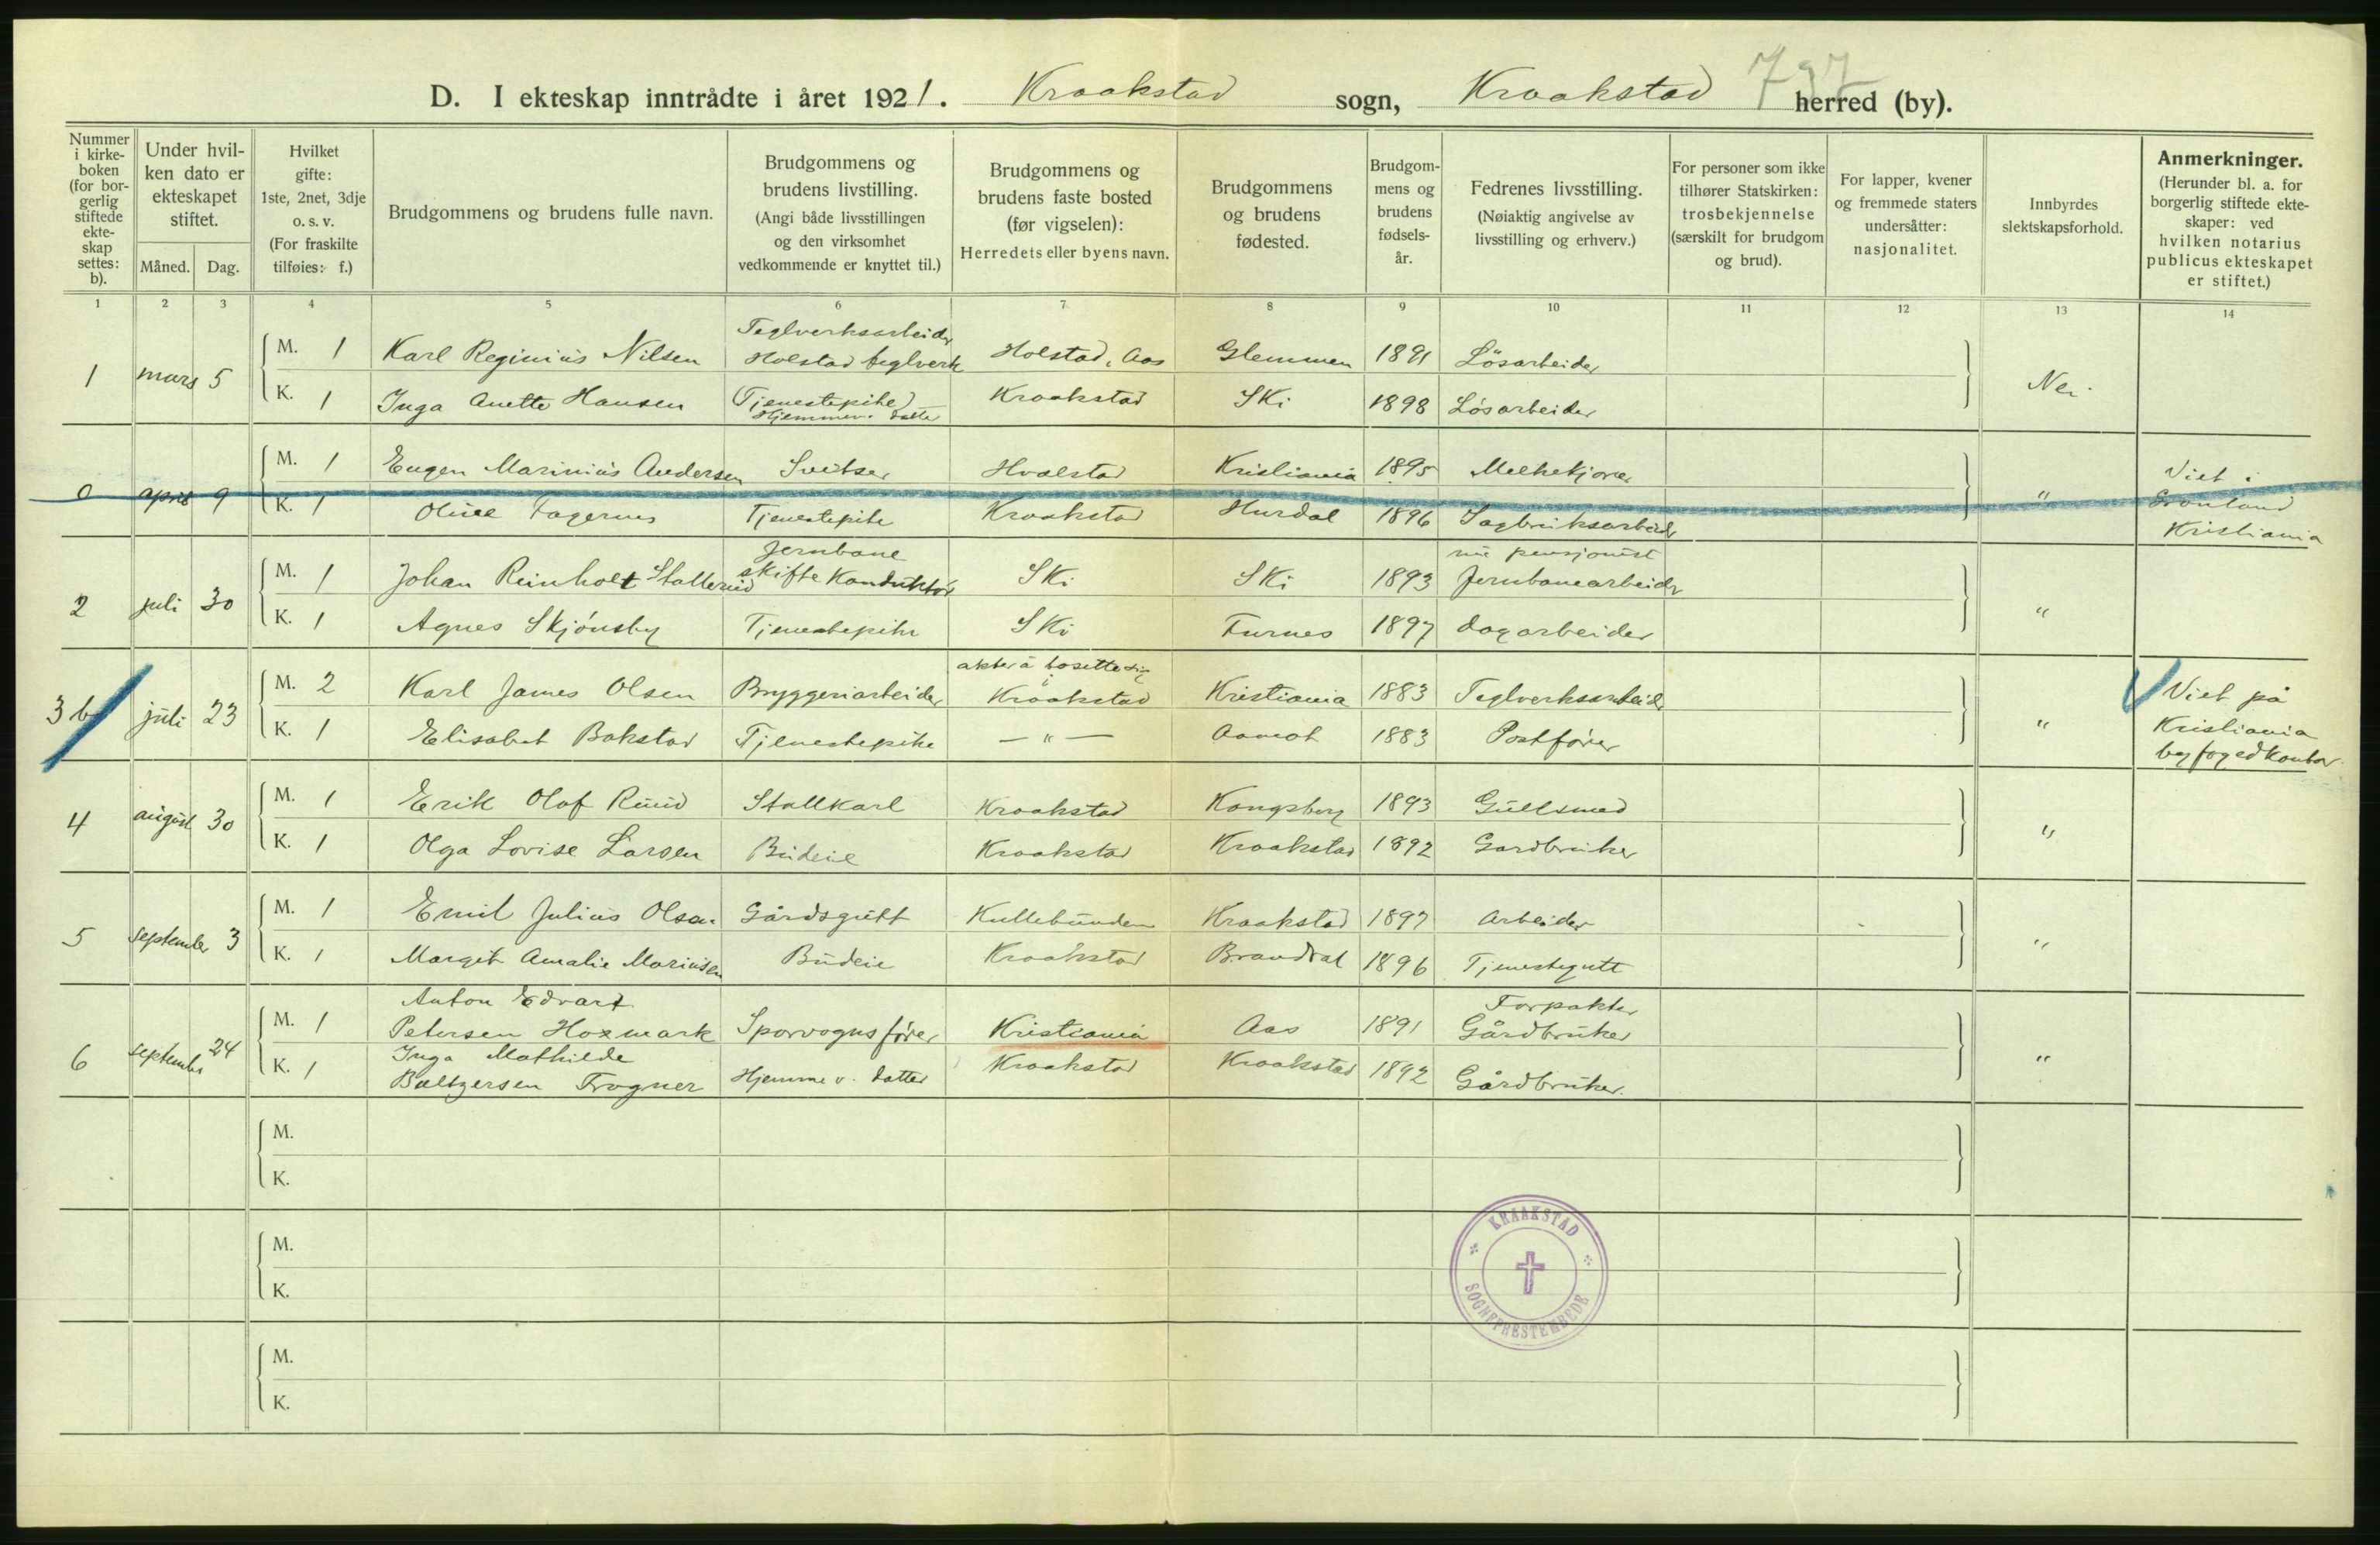 797
D. I ekteskap inntrådte i året 1921. Kraakstad sogn, Kraakstad herred (by).
Nummer i kirke-boken (for bor-gerlig stiftede ekte-skap settes: b).
Under hvil-ken dato er ekteskapet stiftet.
Måned. Dag.
Hvilket gifte: 1ste, 2net, 3dje o. s. v. (For fraskilte tilføies: f.)
Brudgommens og brudens fulle navn.
Brudgommens og brudens livstilling. (Angi både livsstillingen og den virksomhet vedkommende er knyttet til.)
Brudgommens og brudens faste bosted (før vigselen): Herredets eller byens navn.
Brudgommens og brudens fødested.
Brudgom-mens og brudens fødsels-år.
Fedrenes livsstilling. (Nøiaktig angivelse av livsstilling og erhverv.)
For personer som ikke tilhører Statskirken: trosbekjennelse (særskilt for brudgom og brud).
For lapper, kvener og fremmede staters undersåtter: nasjonalitet.
Innbyrdes slektskapsforhold.
Anmerkninger. (Herunder bl. a. for borgerlig stiftede ekte-skaper: ved hvilken notarius publicus ekteskapet er stiftet.)
1 2 3 4 5 6 7 8 9 10 11 12 13 14
1 mars 5
M. 1 Karl Reginius Nilsen Teglverksarbeider Holstad teglverk Holstad, Aas Glemmen 1891 Lösarbeider
K. 1 Inga Anette Hansen (Tjenestepike) Hjemmev. datter Kraakstad Ski 1898 Lösarbeider
Nei
0 april 9
M. 1 Eugen Marinius Andersen Sveitser Hvalstad Kristiania 1895 Melkekjører
K. 1 Oline Fagernes Tjenestepike Kraakstad Hurdal 1896 Sagbruksarbeider
" Viet i Grønland Kristiania
2 juli 30
M. 1 Johan Reinholt Stallerud Jernbane skifte Konduktør Ski Ski 1893 nu pensjonist Jernbanearbeider
K. 1 Agnes Skjönsby Tjenestepike Ski Furnes 1897 dagarbeider
"
3 b juli 23
M. 2 Karl James Olsen Bryggeriarbeider akter å bosette sig i Kraakstad Kristiania 1883 Teglverksarbeider
K. 1 Elisabet Bakstad Tjenestepike — " — Aamot 1883 Postfører
" Viet på Kristiania byfogedkontor.
4 august 30
M. 1 Erik Olaf Ruud Stallkarl Kraakstad Kongsberg 1893 Gullsmed
K. 1 Olga Lovise Larsen Budeie Kraakstad Kraakstad 1892 Gardbruker
"
5 september 3
M. 1 Emil Julius Olsen Gårdsgutt Kullebunden Kraakstad 1897 Arbeider
K. 1 Margit Amalie Mariusen Budeie Kraakstad Brandval 1896 Tjenestegutt
"
6 september 24
M. 1 Anton Edvart Petersen Hoxmark Sporvognsfører Kristiania Aas 1891 Forpakter Gårdbruker
K. 1 Inga Mathilde Baltzersen Frogner Hjemme v. datter Kraakstad Kraakstad 1892 Gårdbruker.
"
M.
K.
M.
K.
M.
K.
KRAAKSTAD SOGNEPRESTEMBEDE